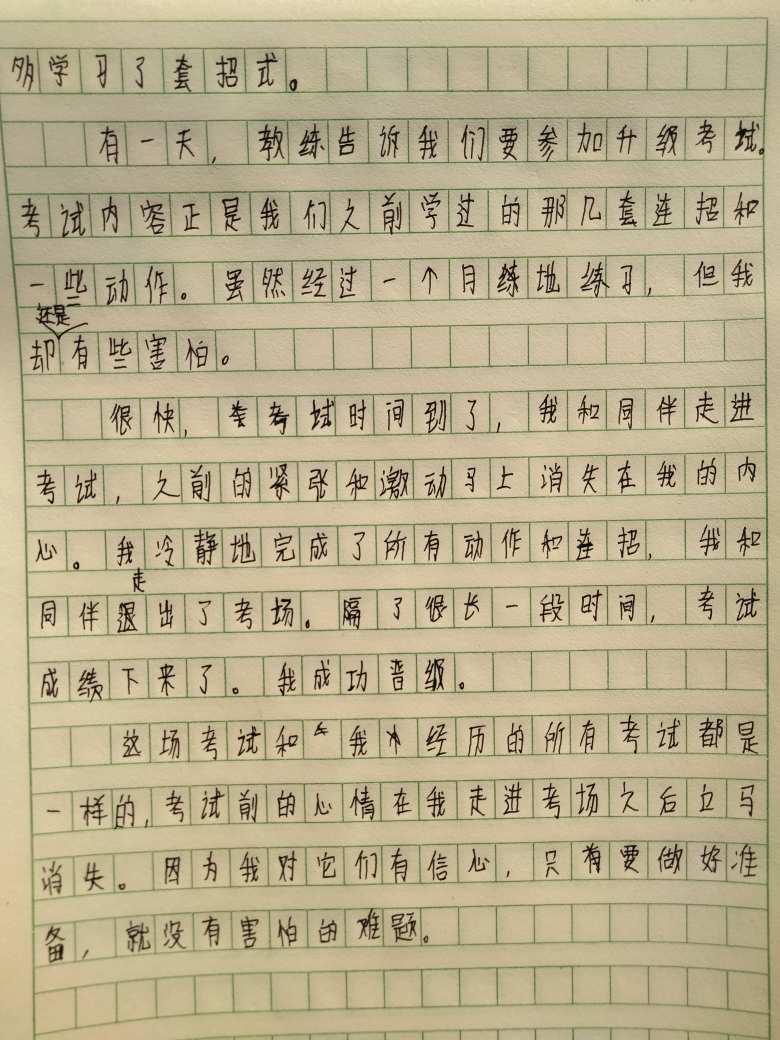 多学习了套招式。
有一天，教练告诉我们要参加升级考试。
考试内容正是我们之前学过的那几套连招和
一些动作。虽然经过一个月练地练习，但我
还是
却有些害怕。
很快，考试时间到了，我和同伴走进
考试，之前的紧张和激动马上消失在我的内
心。我冷静地完成了所有动作和连招，我和
走
同伴退出了考场。隔了很长一段时间，考试
成绩下来了。我成功晋级。
这场考试和我经历的所有考试都是
一样的，考试前的心情在我走进考场之后立马
消失。因为我对它们有信心，只有要做好准
备，就没有害怕的难题。